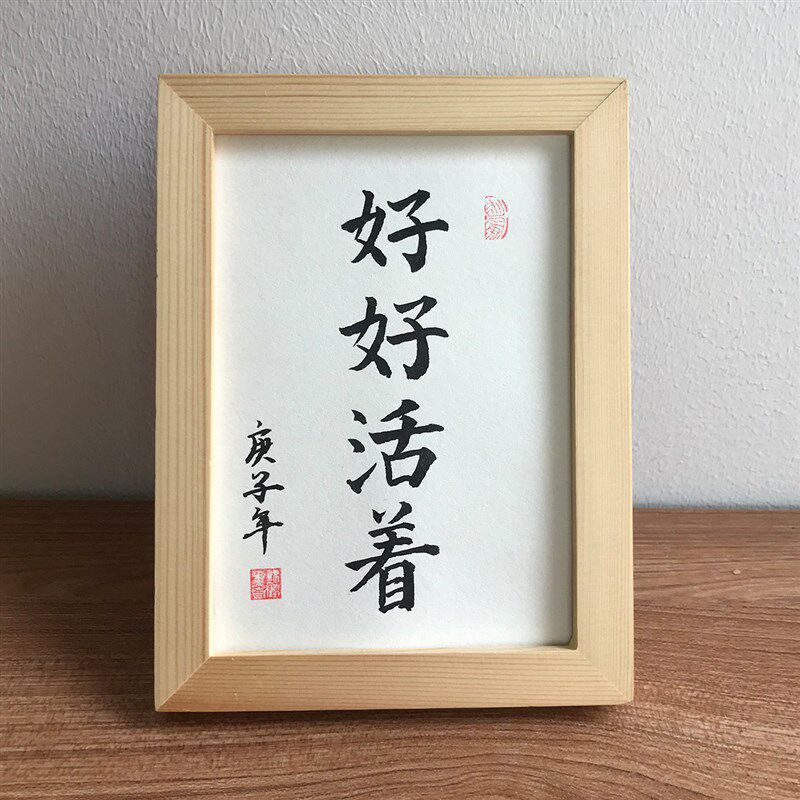 好好活着
庚子年